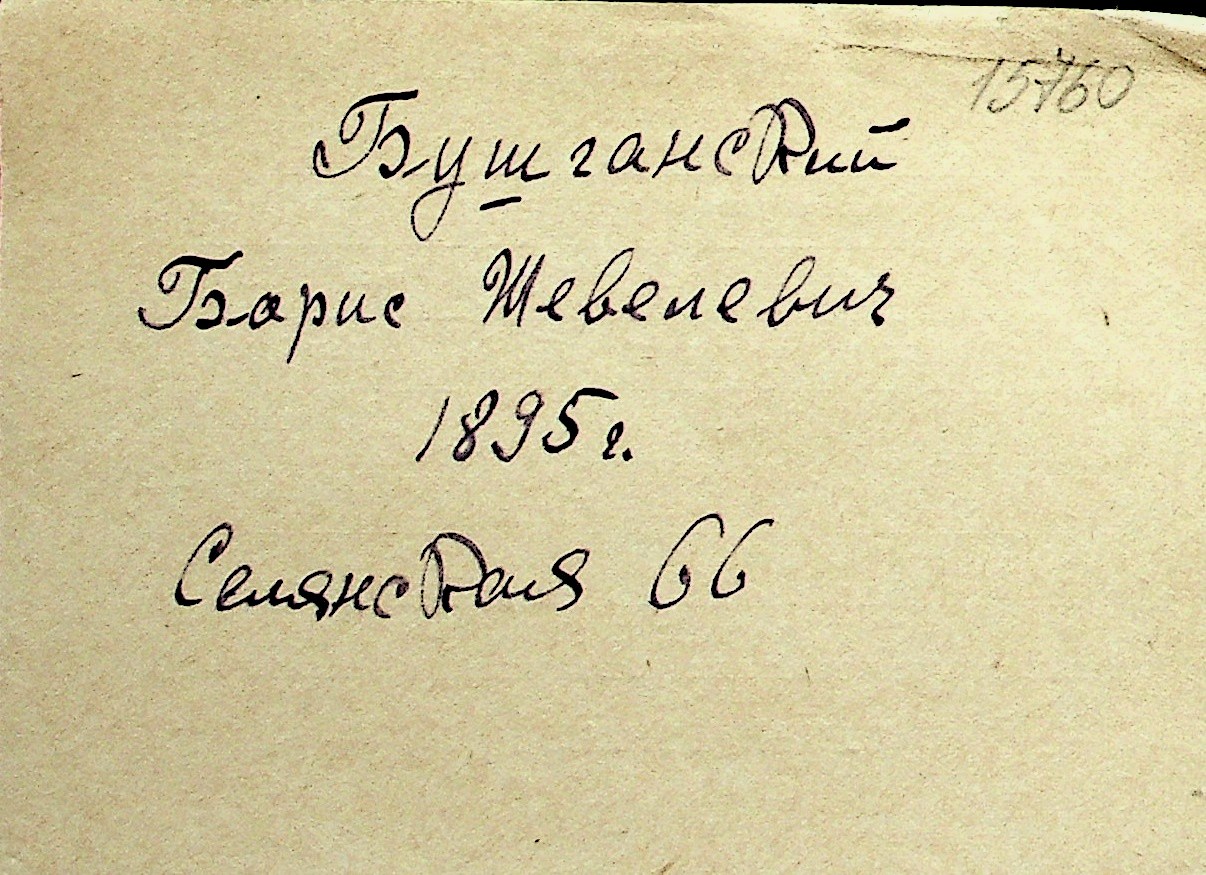 15760
Бушганский
Борис Шевелевич
1895г.
Селянская 66